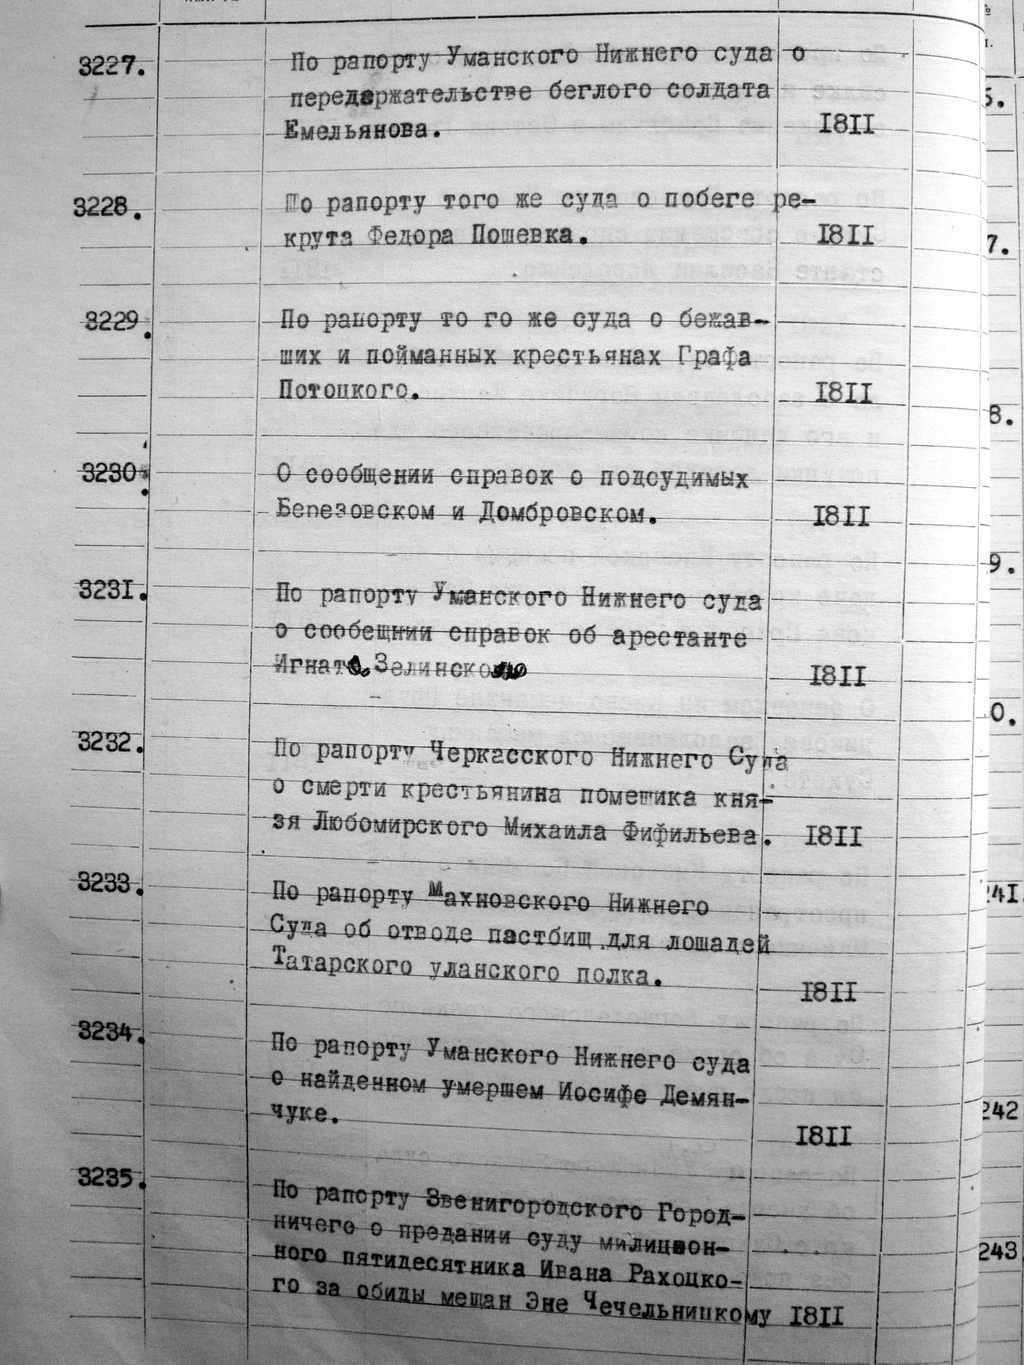 3227.
По рапорту Уманского Нижнего суда о
передержательстве беглого солдата
Емельянова.
1811
3228.
По рапорту того же суда о побеге ре-
крута Федора Пошевка.
1811
3229.
По рапорту то го же суда о бежав-
ших и пойманных крестьянах Графа
Потоцкого.
1811
3230.
О сообщении справок о подсудимых
Березовском и Домбровском.
1811
3231.
По рапорту Уманского Нижнего суда
о сообещнии справок об арестанте
1811
3232.
По рапорту Черкасского Нижнего Суда
о смерти крестьянина помещика кня-
зя Любомирского Михаила Фифильева.
1811
3233.
По рапорту Махновского Нижнего
Суда об отводе пастбищ для лошадей
Татарского уланского полка.
1811
3234.
По рапорту Уманского Нижнего суда
о найденном умершем Иосифе Демян-
чуке.
1811
3235.
По рапорту Звенигородского Город-
ничего о предании суду милицион-
ного пятидесятника Ивана Рахоцко-
го за обиды мещан Эне Чечельницкому 1811
7.
8.
9.
0.
241.
242
243